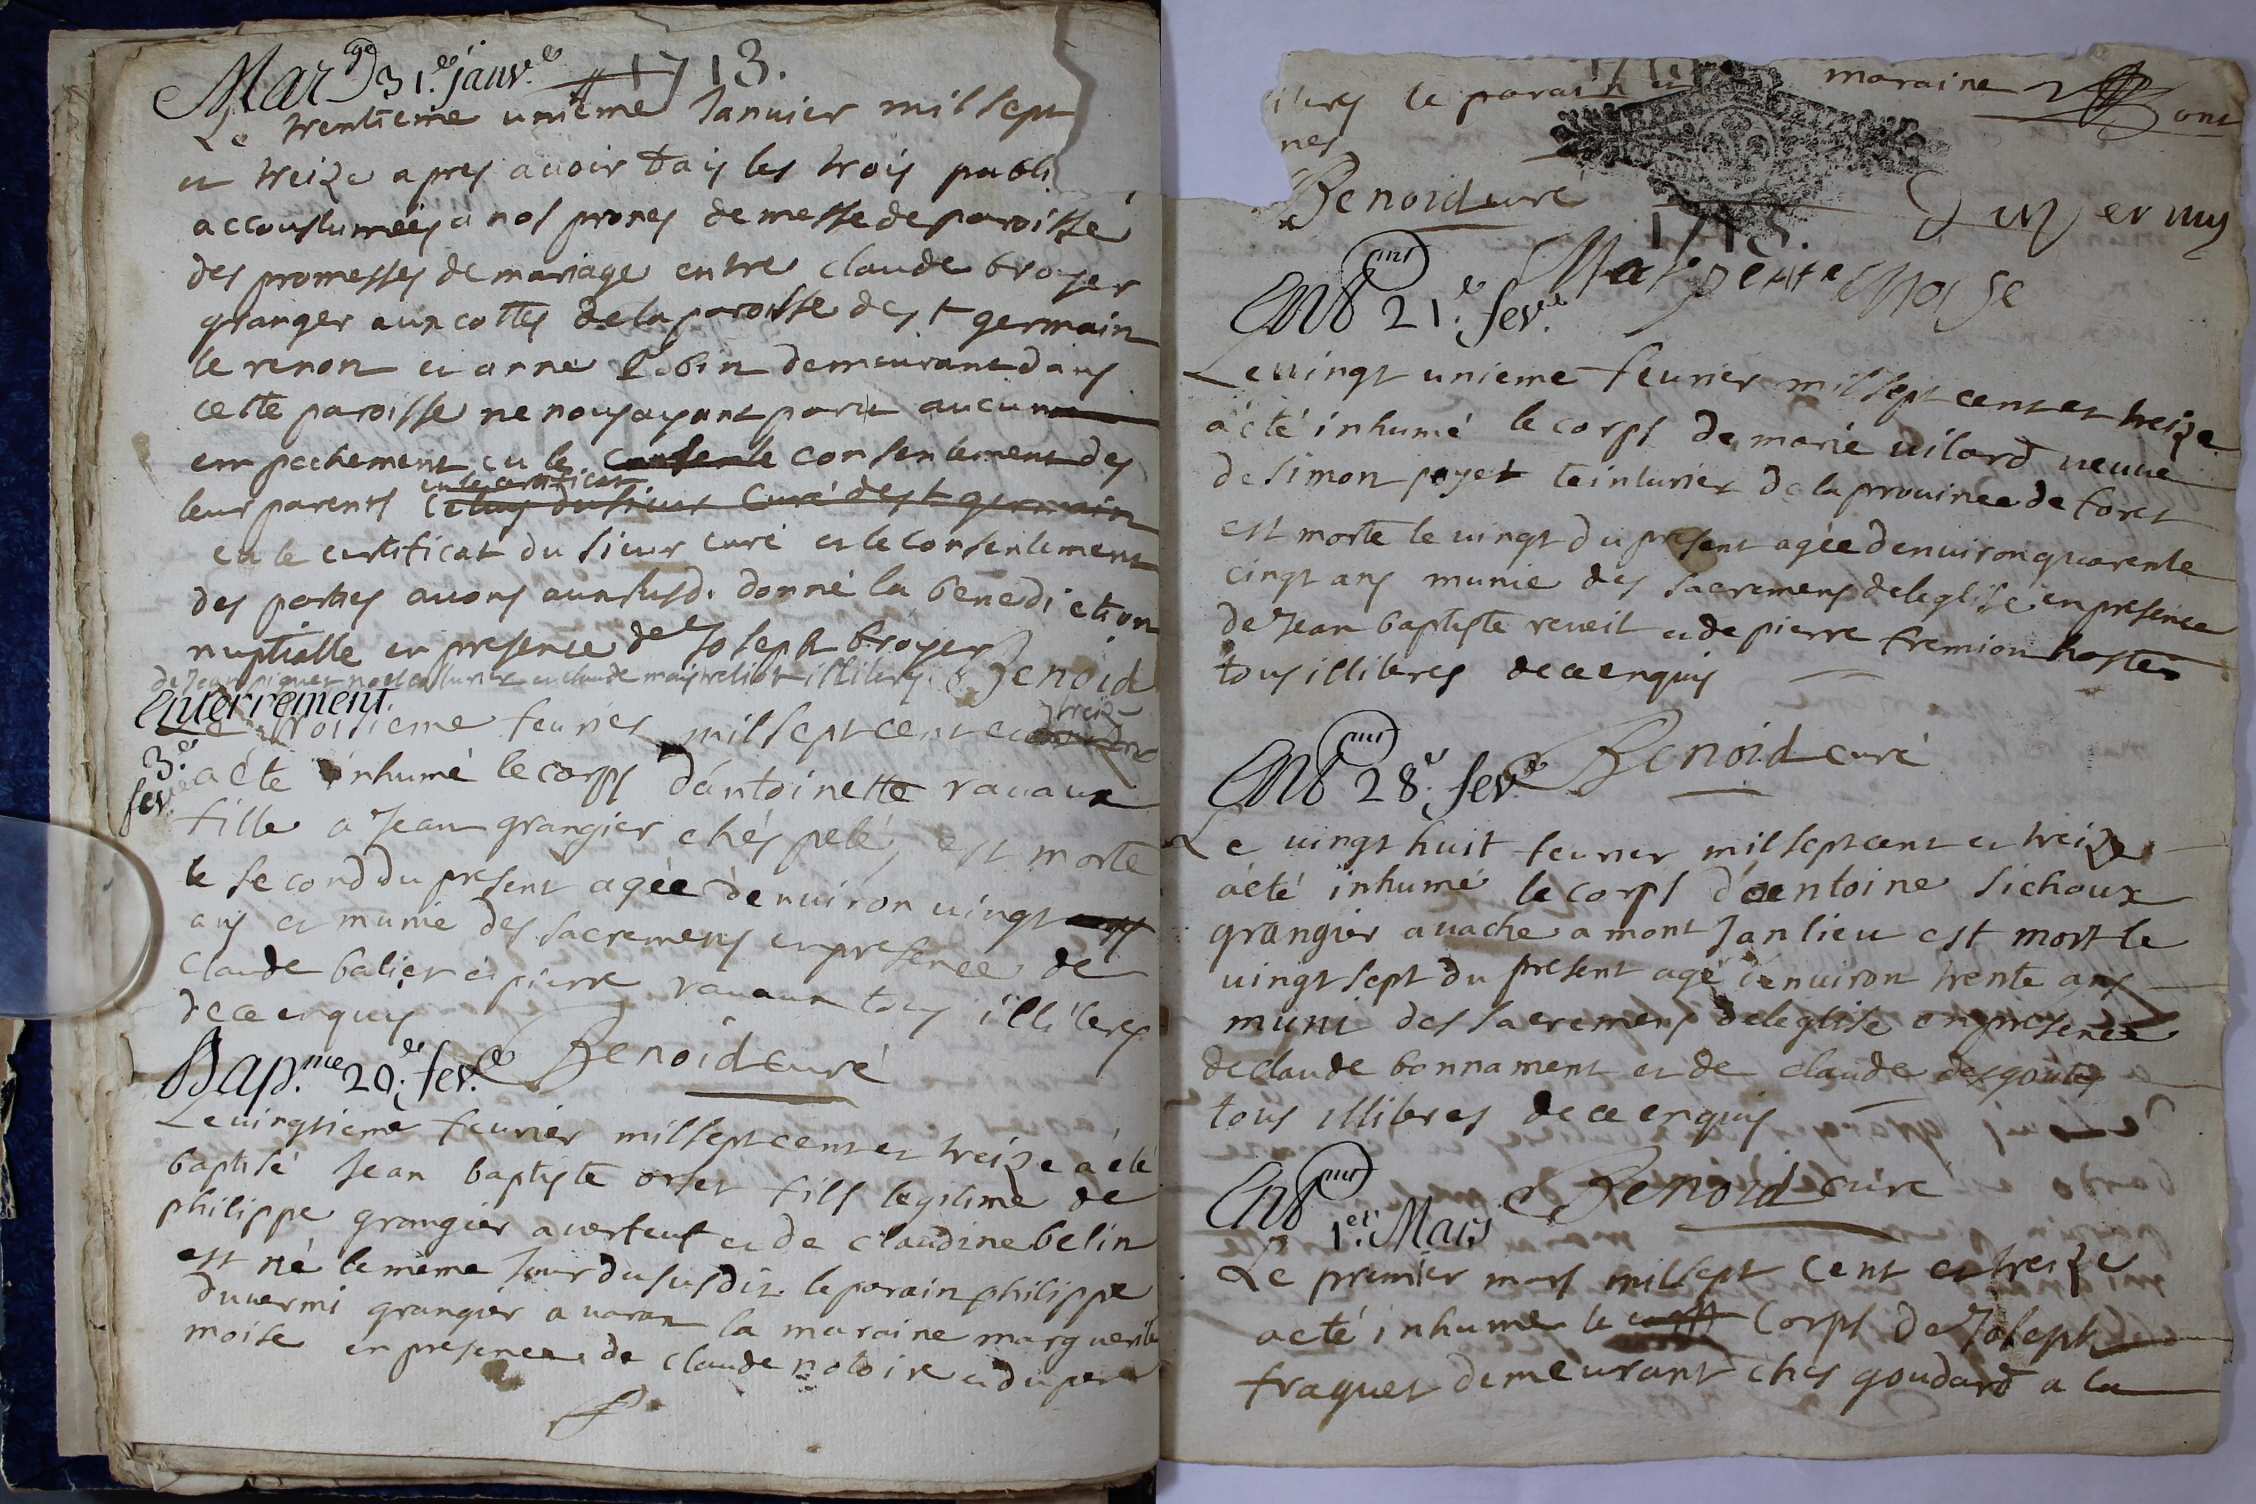 Mar.ge 31.e janv.e 1713.
Le trentieme unieme Janvier mil sept
et treize apres avoir fais les trois publi
accoustumées a nos prones de messe de paroisse
des promesses de mariage entre claude broyer
granger aux cottes de la paroisse de st germain
le renon et anne Robin demeurant dans
cette paroisse ne nous ayant paru aucun
empechement eu le consentement des
leur parents
eu le certificat du sieur curé et le consentement
des parties avons aux susd. donné la benediction
nuptialle en presence de Joseph broyer
de Jean et claude illiteres Benoid
Enterrement.
3.e fev.
Le troisieme fevrier mil sept cent et treize
a été inhumé le corps d'antoinette ravaux
fille a Jean grangier chés pelé, est morte
le second du present agée d'environ vingt
ans et munie des sacremens en presence de
claude balier et pierre ravaux tous illiteres
de ce enquis
Benoid curé
Bap.me 20.e fev.e
Le vingtieme fevrier mil sept cent et treize a été
baptisé Jean baptiste orset fils legitime de
philippe grangier a verteuf et de claudine belin
est né le même Jour du susdit le parain philippe
duvermi grangier a varax la maraine marguerite
moise en presence de claude notoire et du pere
iteres le parain et maraine ont
nes
Benoid curé
Duvernus
1713.
Marguerite Moyse
Ent.mt 21.e fev.e
Le vingt unieme fevrier mil sept cent et treize
a été inhumé le corps de marie vilard veuve
de simon poyet teinturier de la province de foret
est morte le vingt du present agée d'environ quarente
cinqt ans munie des sacremens de leglise en presence
de Jean baptiste reveil et de pierre fremion hostes
tous illiteres de ce enquis
Benoid curé
Ent.mt 28.e fev.e
Le vingt huit fevrier mil sept cent et treize
a été inhumé le corps d'antoine sichoux
grangier a vache a mont Janlieu est mort le
vingt sept du present agé d'environ trente ans
muni des sacremens de leglise en presence
de claude bonnament et de claude desgoutes
tous illiteres de ce enquis
Benoid curé
Ent.mt 1.er Mars
Le premier mars mil sept cent et treize
a été inhumé le corps de Joseph
fraquet demeurant ches goudard a la